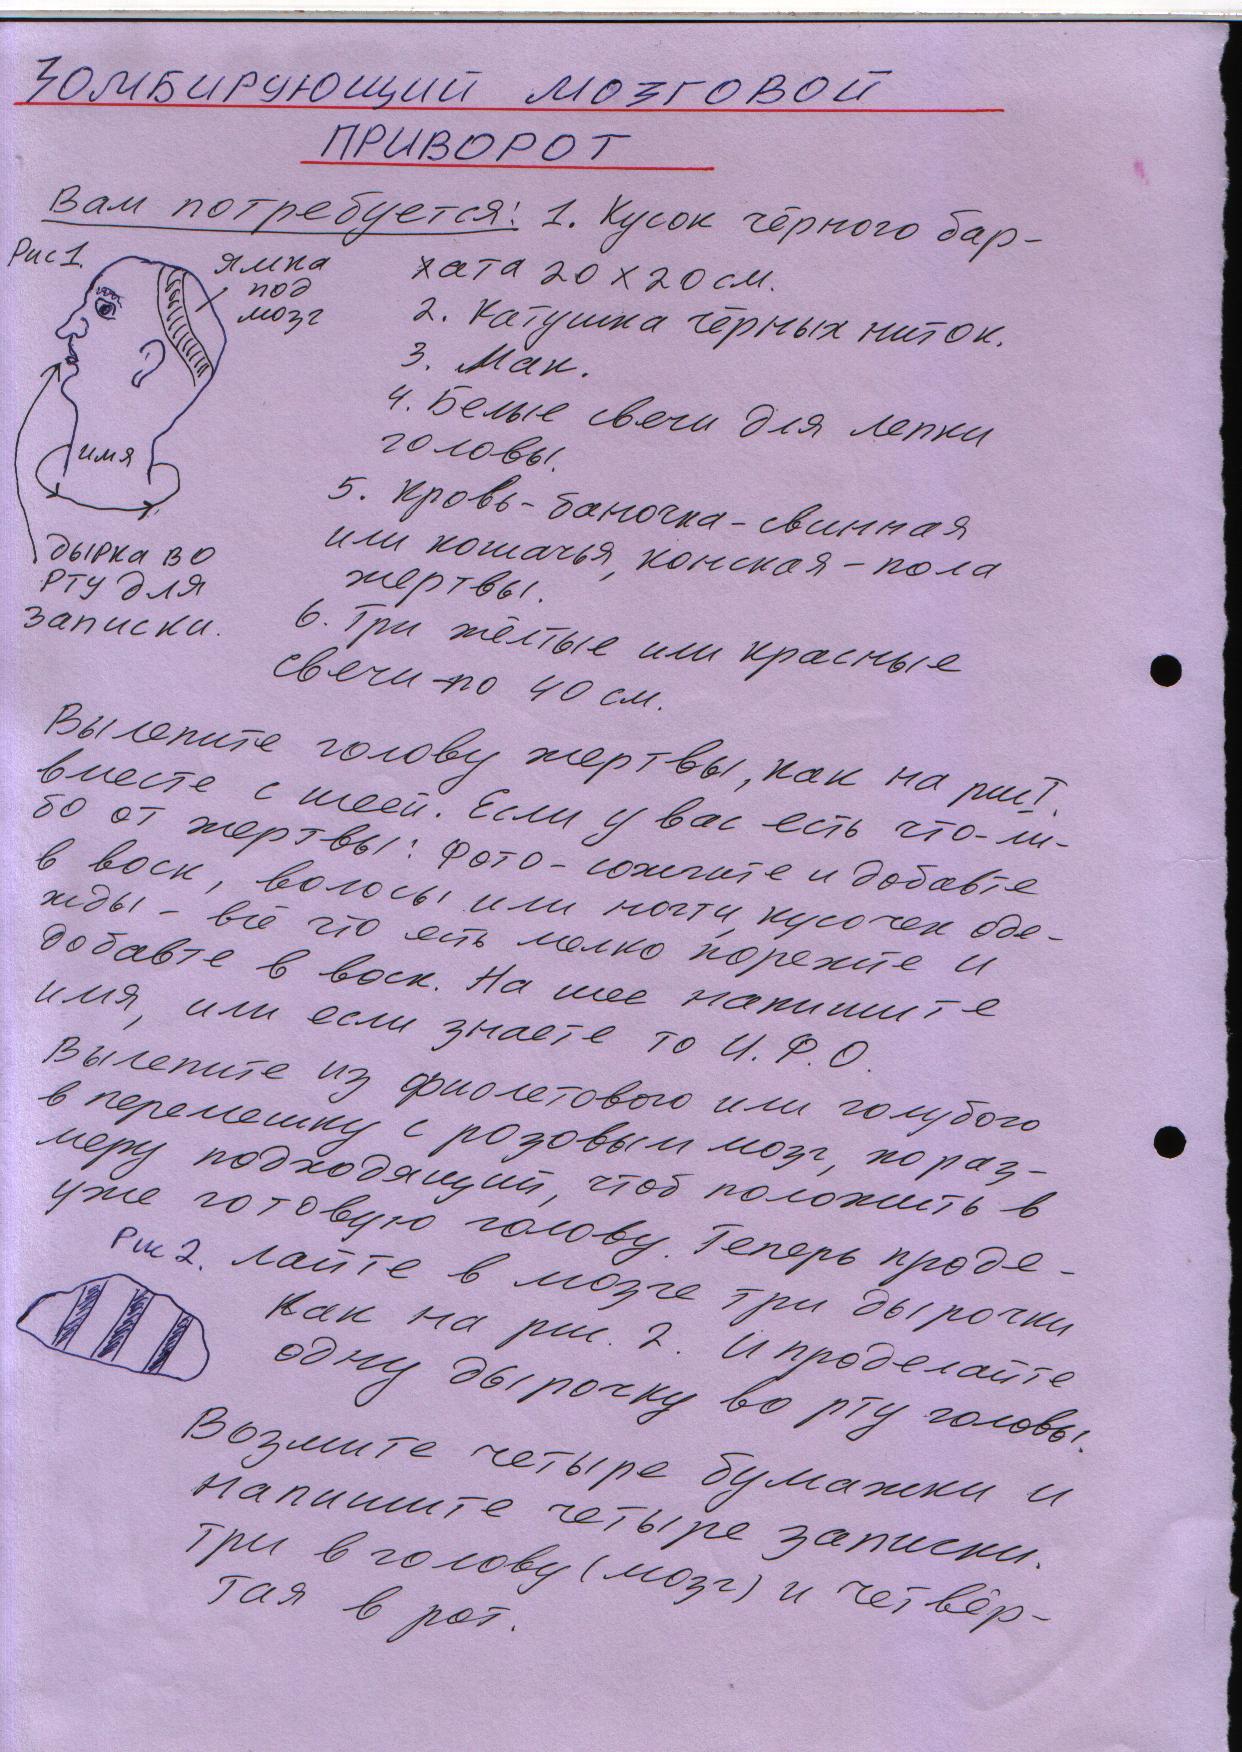 ЗОМБИРУЮЩИЙ МОЗГОВОЙ
ПРИВОРОТ
Вам потребуется: 1. Кусок чёрного бар-
хата 20 х 20 см.
2. Катушка чёрных ниток.
3. Мак.
4. Белые свечи для лепки
головы.
5. Кровь-баночка-свинная
или кошачья, конская-пола
жертвы.
6. Три жёлтые или красные
свечи-по 40 см.
Рис 1.
ямка
под
мозг
имя
дырка во
рту для
записки.
Вылепите голову жертвы, как на рис 1.
вместе с шеей. Если у вас есть что-ли-
бо от жертвы: Фото-сожгите и добавте
в воск, волосы или ногти, кусочек оде-
жды - всё что есть мелко порежте и
добавте в воск. На шее напишите
имя, или если знаете то И.Ф.О.
Вылепите из фиолетового или голубого
в перемешку с розовым мозг, по раз-
меру подходящий, чтоб положить в
уже готовую голову. Теперь проде-
лайте в мозге три дырочки
Рис 2.
как на рис. 2. И проделайте
одну дырочку во рту головы.
Возмите четыре бумажки и
напишите четыре записки.
Три в голову (мозг) и четвёр-
тая в рот.